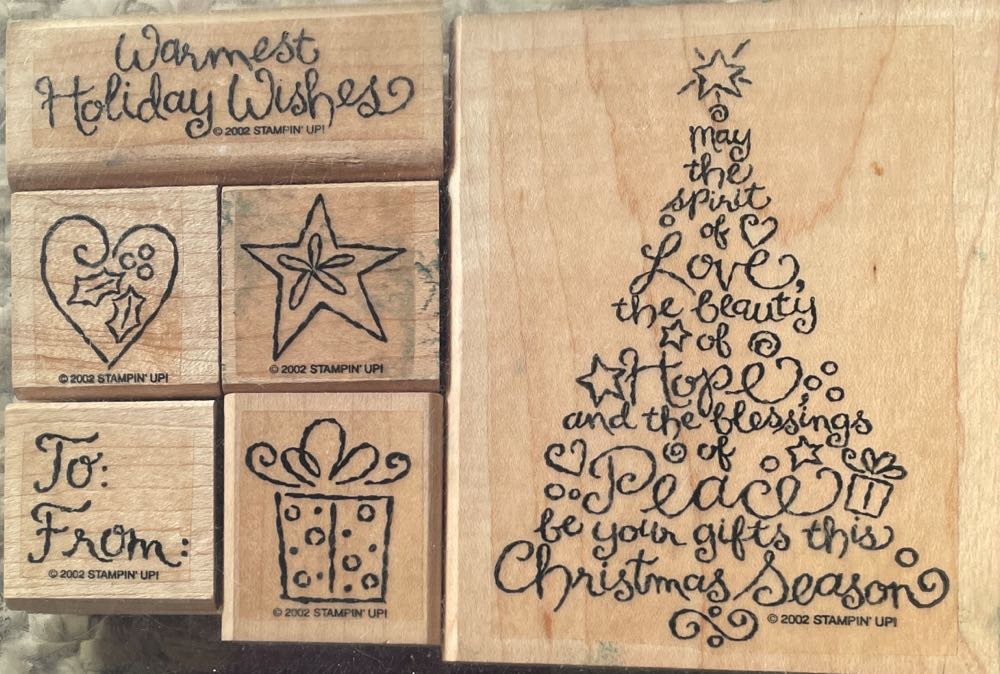 Warmest
Holiday Wishes
© 2002 STAMPIN' UP!
© 2002 STAMPIN' UP!
© 2002 STAMPIN' UP!
To:
From:
© 2002 STAMPIN' UP!
© 2002 STAMPIN' UP!
may
the
spirit
of
Love,
the beauty
of
Hope,
and the blessings
of
Peace
be your gifts this
Christmas Season
© 2002 STAMPIN' UP!